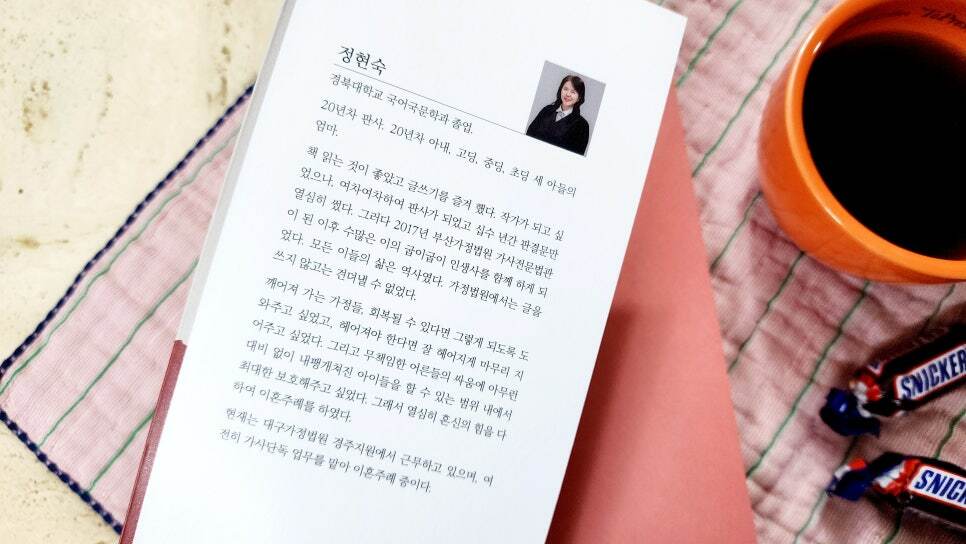 정현숙
경북대학교 국어국문학과 졸업.
20년차 판사. 20년차 아내, 고딩, 중딩, 초딩 세 아들의
엄마.
책 읽는 것이 좋았고 글쓰기를 즐겨 했다. 작가가 되고 싶
었으나, 여차여차하여 판사가 되었고 십수 년간 판결문만
열심히 썼다. 그러다 2017년 부산가정법원 가사전문법관
이 된 이후 수많은 이의 굽이굽이 인생사를 함께 하게 되
었다. 모든 이들의 삶은 역사였다. 가정법원에서는 글을
쓰지 않고는 견뎌낼 수 없었다.
깨어져 가는 가정들, 회복될 수 있다면 그렇게 되도록 도
와주고 싶었고, 헤어져야 한다면 잘 헤어지게 마무리 지
어주고 싶었다. 그리고 무책임한 어른들의 싸움에 아무런
대비 없이 내팽개쳐진 아이들을 할 수 있는 범위 내에서
최대한 보호해주고 싶었다. 그래서 열심히 혼신의 힘을 다
하여 이혼주례를 하였다.
현재는 대구가정법원 경주지원에서 근무하고 있으며, 여
전히 가사단독 업무를 맡아 이혼주례 중이다.
SNICKER
SNICK